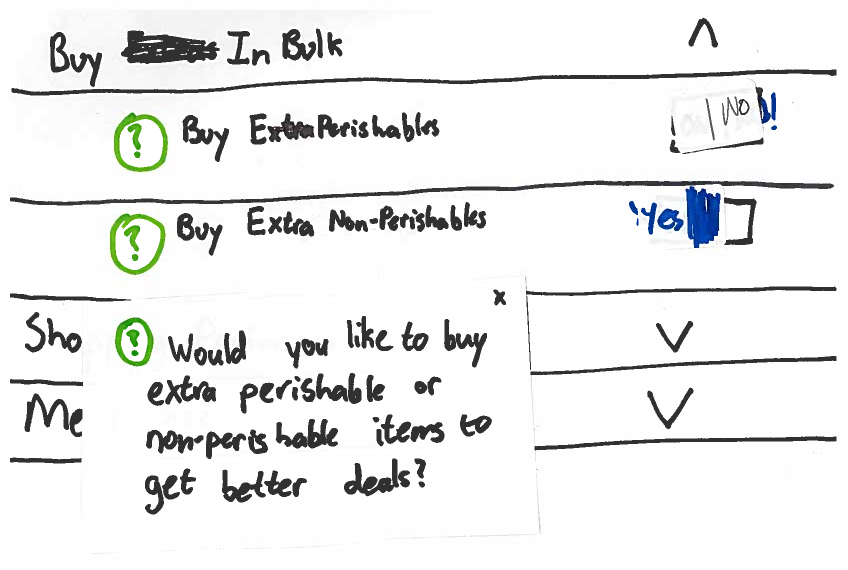 Buy In Bulk
? Buy Extra Perishables
No
? Buy Extra Non-Perishables
Yes
Sho
Me
x
? Would you like to buy
extra perishable or
non-perishable items to
get better deals?